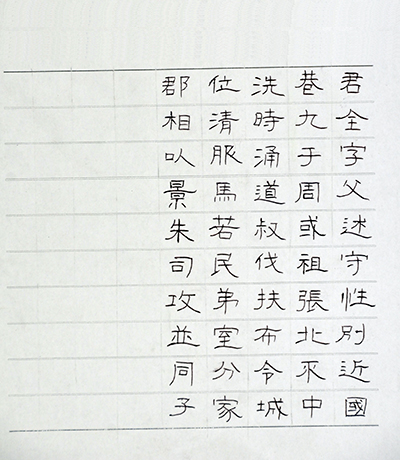 君全字父述守性別近國
巷九于周或祖張北不中
洗時涌道叔伐扶布令城
位清服馬若民弟室分家
郡相以景朱司攻並同子